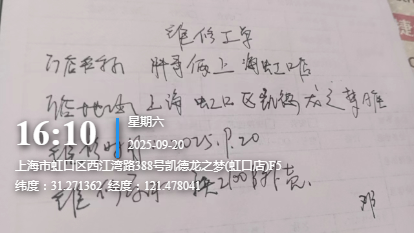 维修工单
门店名称 胖哥俩上海虹口店
门店地址 上海虹口区凯德龙之梦
16:10
星期六
2025-09-20
2025.9.20
上海市虹口区西江湾路388号凯德龙之梦(虹口店)F5
纬度：31.271362 经度：121.478041
换2100外壳.
邓